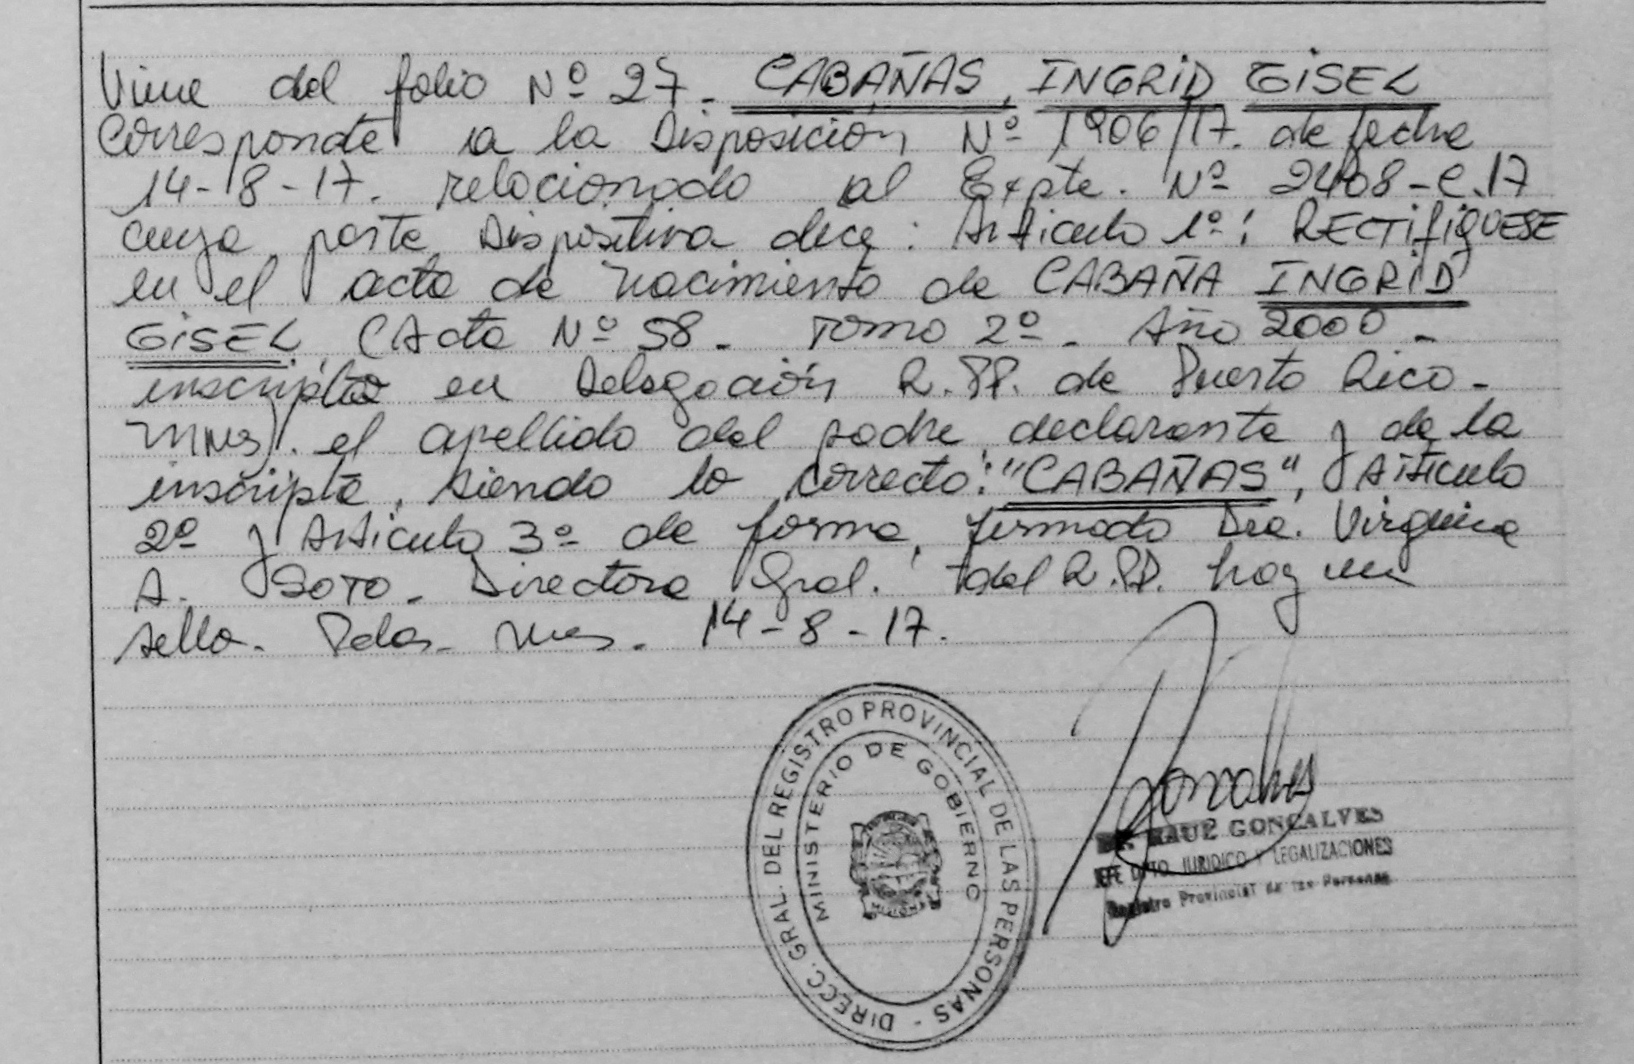 Viene del folio Nº 27. CABAÑAS, INGRID GISEL
Corresponde a la Disposición Nº 1906/17. de fecha
14-8-17. relacionado al Expte. Nº 2408-C.17
cuya parte Dispositiva dice: Articulo 1º: RECTIFIQUESE
en el acta de nacimiento de CABAÑA INGRID
GISEL, (Acta Nº 58. Tomo 2º. Año 2000.
inscripta en Delegación R.PP. de Puerto Rico-
Mnes). el apellido del padre declarante y de la
inscripta, siendo lo correcto: "CABAÑAS", Articulo
2º y Articulo 3º de forma, firmado Dra. Virginia
A. SOTO. Directora Gral. del R.PP. hay un
sello. Pdas. Mnes. 14-8-17.
DIRECC. GRAL. DEL REGISTRO PROVINCIAL DE LAS PERSONAS -
MINISTERIO DE GOBIERNO
MISIONES
Goncalves
Dr. RAUL GONCALVES
JEFE DPTO JURIDICO Y LEGALIZACIONES
Registro Provincial de las Personas